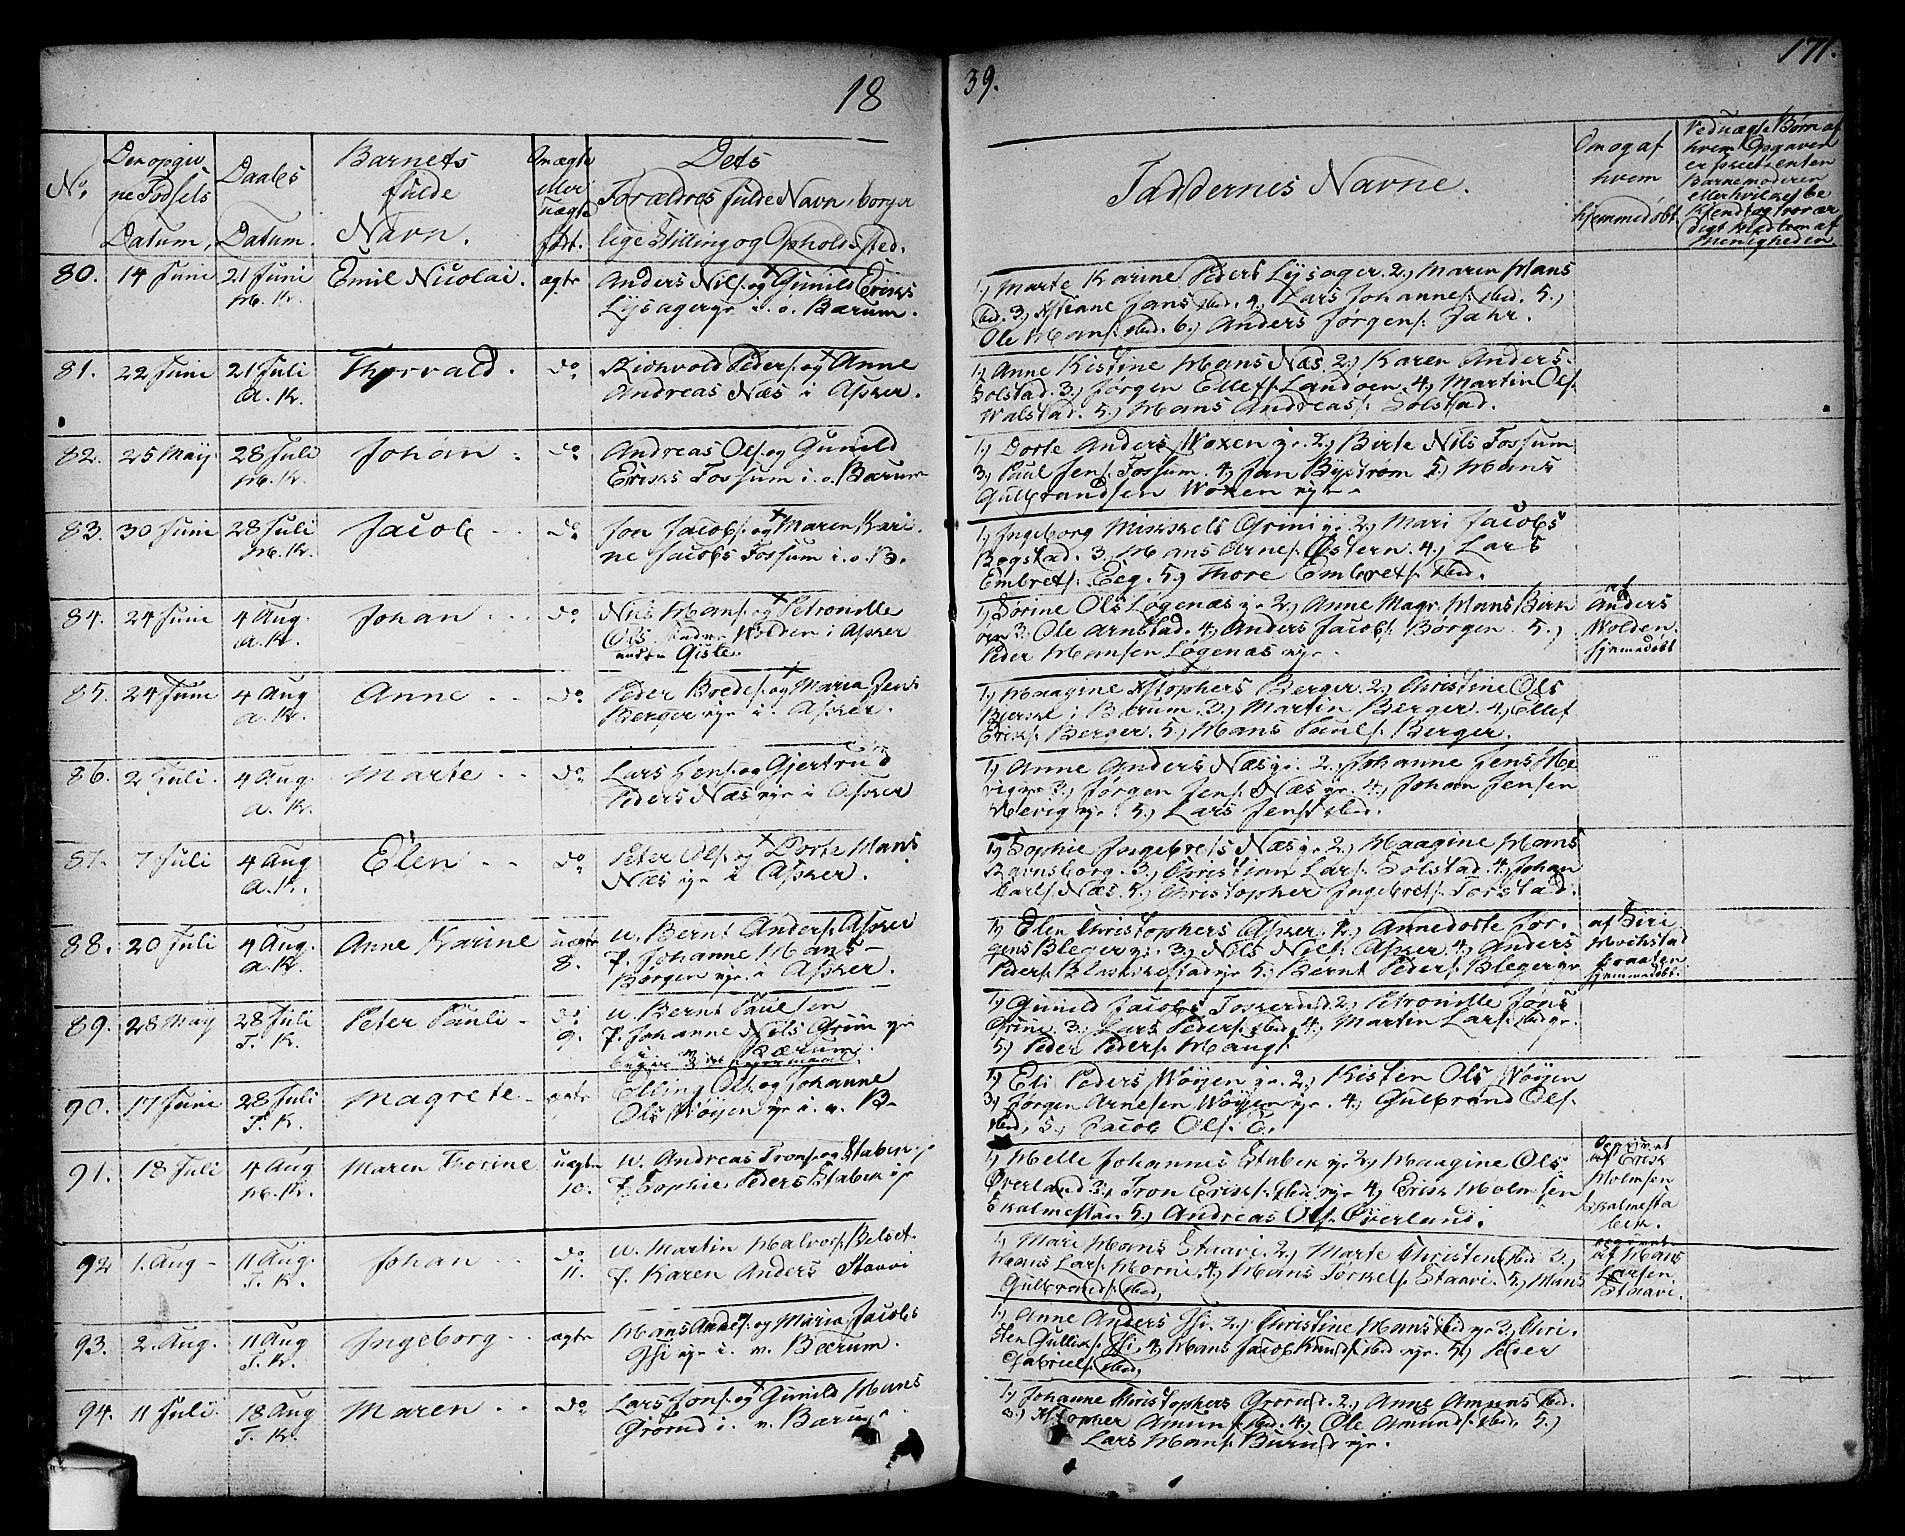 18
39.
171.
No.
Den opgiv
ne Fødsels
Datum.
Daabs
Datum.
Barnets
fulde
Navn.
Om ægte
eller
uægte
født.
Dets
Forældres fulde Navn, borger
lige Stilling og Opholdssted.
Faddernes Navne.
Om og af
hvem
hjemmedøbt.
Ved uægte Børn af
hvem Opgaven
er skeet enten
Barnemoderen
eller hvilket be
kjendt og trovær
digt Medlem af
Menigheden
80. 14 Juni
21 Juni
H. K.
Emil Nicolai. ægte
Anders Nils. og Gunild Eriks
Lysager i Ø. Bærum.
1.) Marte Karine Peders Lysager. 2.) Maren Hans
sted. 3.) Xstiane Jans sted. 4.) Lars Johannes. sted. 5.)
Ole Hans. sted. 6.) Anders Jørgens. Jahr.
81. 22 Juni
21 Juli
A. K.
Thorvald. do.
Peders. og Anne
Andreas Næs i Asker.
1.) Anne Kistine Hans Næs. 2.) Karen Anders
Solstad. 3.) Jørgen Ellefs. Landøen. 4.) Martin Ols.
Walstad. 5.) Hans Andreas. Solstad.
82. 25 May
28 Juli
H. K.
Johan do.
Andreas Ols. og Gunild
Eriks Fossum i Ø. Bærum
1.) Dorte Anders Woxen ye. 2.) Birte Nils Fossum
3.) Paul Jens. Fossum. 4.) Jan Bystrøm 5.) Hans
Gulbrandsen Woxen eye.
83. 30 Juni
28 Juli
H. K.
Jacob do.
Jon Jacobs. og Maren Kari
ne Jacobs Fossum i Ø. B.
1.) Ingeborg Mikkels Grini ye. 2.) Mari Jacobs
Bogstad. 3. Hans Arnes. Østern. 4.) Lars
Embrets. Eeg. 5.) Thore Embrets. sted.
84. 24 Juni
4 Aug.
A. K.
Johan do.
Nils Hans. og Petronille
Ols Wolden i Asker
Giste.
1.) Sørine Ols Løgenæs ye. 2.) Anne Magr. Hans Birk
3.) Ole Arnstad. 4.) Anders Jacobs. Børgen. 5.)
Peder Hansen Løgenæs eye.
af
Anders
Wolden
hjemmedøbt
85. 24 Juni
4 Aug
A. K.
Anne do.
Peder Bredes. og Maria Jens
Berger eye i Asker.
1.) Maagine Xstophers Berger. 2.) Christine Ols
i Bærum. 3.) Martin Berger. 4.) Ellef
Eriks. Berger. 5.) Hans Pauls. Berger.
86. 2 Juli.
4 Aug.
A. K.
Marte do.
Lars Jens. og Gjertrud
Peders Næs eye i Asker
1.) Anne Anders Næs ye. 2.) Johanne Jens He
rig ye 3.) Jørgen Jens. Næs ye. 4.) Johan Jensen
Herig ye. 5.) Lars Jens. sted.
87. 7 Juli
4 Aug
A. K.
Elen do.
Peter Ols. og Dorte Hans
Næs eye i Asker.
1.) Sophie Ingebrets Næs ye. 2.) Maagine Hans
Ravnsborg. 3.) Christian Lars. Solstad. 4.) Johan
Carls. Næs. 5.) Christopher Ingebrets. Torstad.
88. 20 Juli
4 Aug.
A. K.
Anne Karine
uægte
8.
u. Bernt Anders. Asker
F. Johanne Hans
Børgen eye i Asker.
1.) Elen Christophers Asker. 2.) Annedorte Jør.
gens Bleger ye. 3.) Nils Nils. Asker. 4.) Anders
Peders. Blakkestad eye 5.) Bernt Peders. Bleger ye
af Siri
Hochstad
hjemmedøbt.
89. 28 May
28 Juli
T. K.
Peter Pauli
do.
9.
u. Bernt Paulsen
F. Johanne Nils Grini ye
Bærum.
1.) Gunild Jacobs. 2.) Petronille Jons
Grini. 3.) Lars Peders. sted. 4.) Martin Lars. sted ye.
5.) Peder Peders. Haugs.
90. 17 Juni
28 Juli
T. K.
Magrete. ægte
Elling Ols. og Johanne
Ols Wøyen ye i v. B.
1.) Eli Peders Wøyen ye. 2.) Kisten Ols Wøyen
3.) Jørgen Arnesen Wøyen ye. 4.) Gulbrand Ols.
sted. 5.) Jacob Ols.
91. 18 Juli
4 Aug
H. K.
Maren Thorine
uægte
10.
u. Andreas Trons. og Staben
F. Sophie Peders Staben ye
1.) Helle Johannes Staben ye 2.) Maagine Ols
Øverland 3.) Tron Eriks. sted ye 4.) Erik Holmsen
Skalmestad. 5.) Andreas Ols. Øverland.
af Erik
Holmsen
Skalmesta
bek.
92 1. Aug
11 Aug.
T. K.
Johan
do.
11.
u. Martin Halvors. Belset
F. Karen Anders Staavi
1.) Mari Hans Staavi. 2.) Marte Christens sted 3.)
Hans Lars. Horni. 4.) Hans Torkels. Staavi. 5.) Hans
Gulbrands. sted.
af Hans
Larsen
Staavi.
93. 2. Aug.
11 Aug
T. K.
Ingeborg ægte
Hans Anders. og Maria Jacobs
Ihi eye i v. Bærum.
1.) Anne Anders Ihi. 2.) Christine Hans sted ye 3.) Chri.
sten Gulliks. Ihi. 4.) Hans Jacob Knuds. sted eye. 5.) Peder
Gabriels. sted.
94. 11 Juli.
18 Aug
T. K.
Maren do.
Lars Jons. og Gunild Hans
Grorud i v. Bærum.
1.) Johanne Christophers Grorud. 2.) Anne Amunds sted.
3.) Xstopher Amunds. sted. 4.) Ole Amunds. sted. 5.)
Lars Hans. Burud eye.